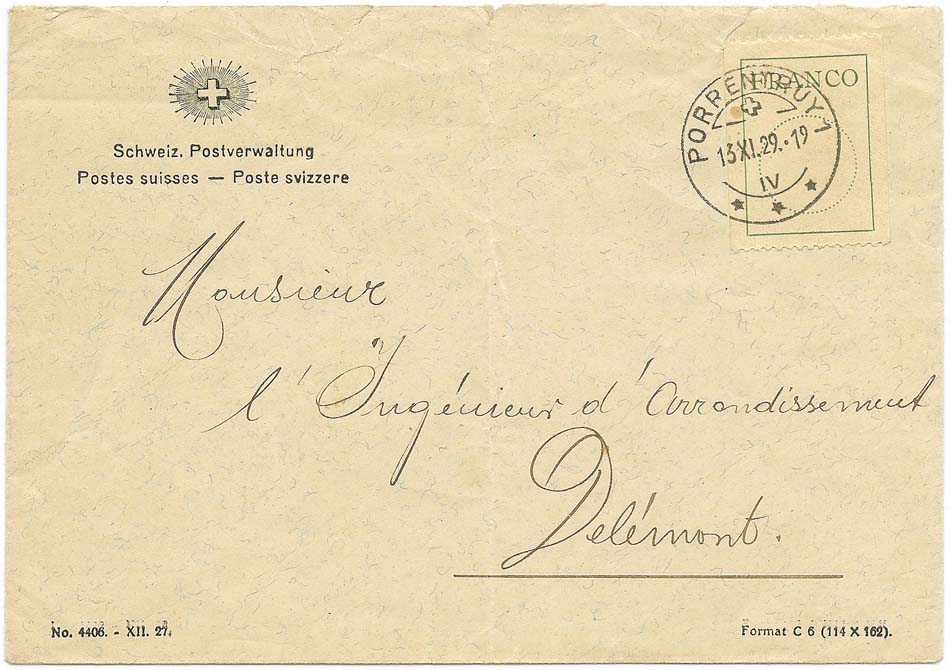 Schweiz. Postverwaltung
Postes suisses — Poste svizzere
FRANCO
PORRENTRUY 1
13.XI.29.·19
IV
Monsieur
l'Ingénieur d'Arrondissement
Delémont.
No. 4406. - XII. 27.
Format C 6 (114 X 162).